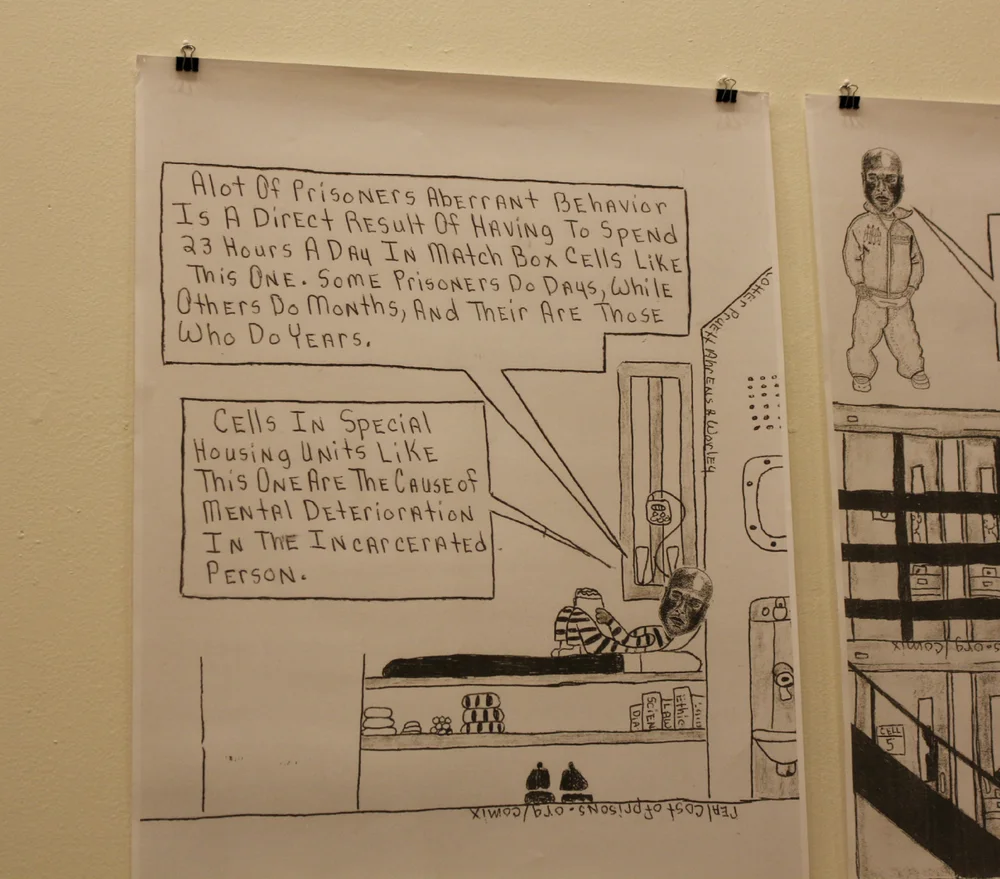 Alot Of Prisoners Aberrant Behavior
Is A Direct Result Of Having To Spend
23 Hours A Day In Match Box Cells Like
This One. Some Prisoners Do Days, While
Others Do Months, And Their Are Those
Who Do Years.
Cells In Special
Housing Units Like
This One Are The Cause of
Mental Deterioration
In The Incarcerated
Person.
Ahrens & Worley
Scien
Law
Ethic
realcostofprisons.org/comix
s.org/comix
Cell
5